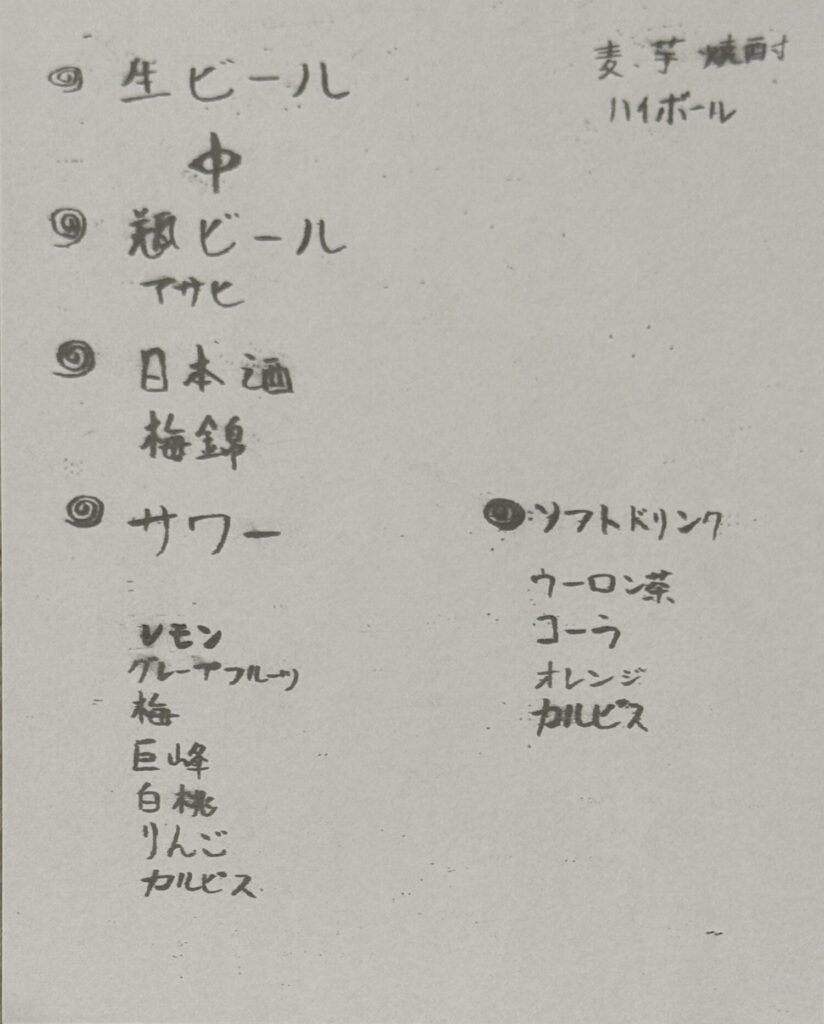 生ビール
中
瓶ビール
アサヒ
日本酒
梅錦
サワー
レモン
グレープフルーツ
梅
巨峰
白桃
りんご
カルピス
麦 芋 焼酎
ハイボール
ソフトドリンク
ウーロン茶
コーラ
オレンジ
カルピス